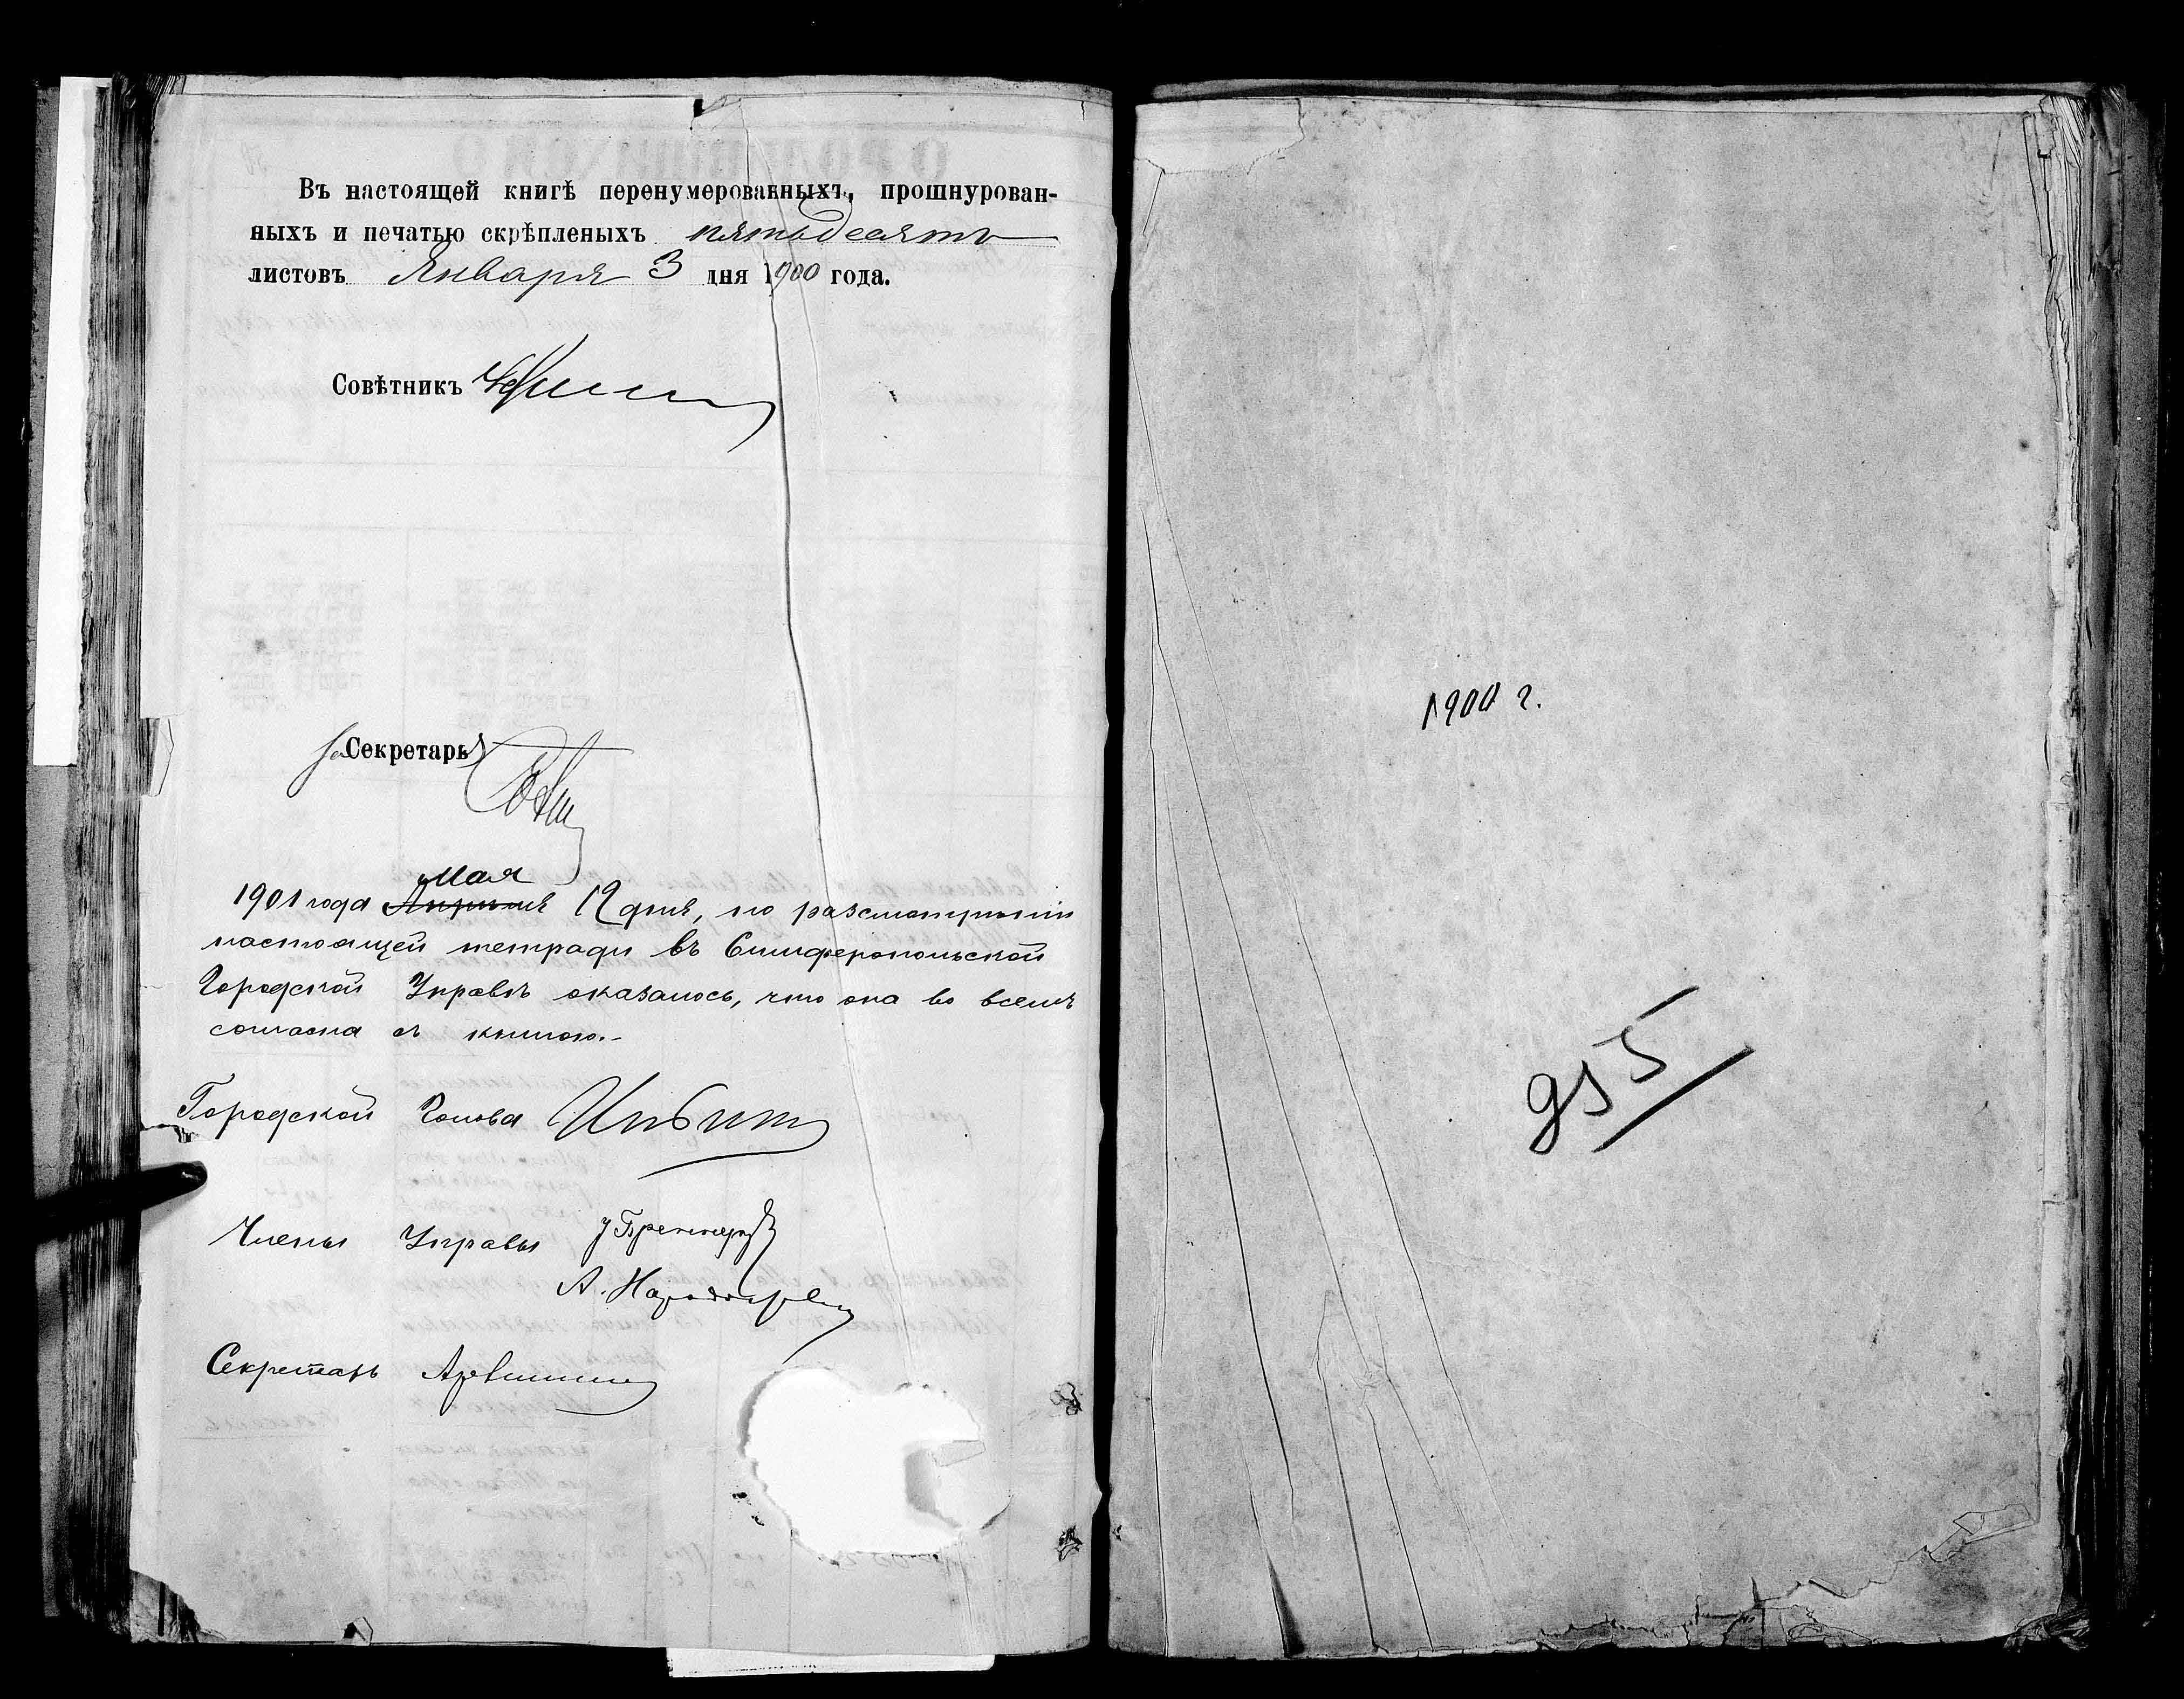 Въ настоящей книгѣ перенумерованныхъ, прошнурован-
ныхъ и печатью скрѣпленыхъ пятьдесятъ
листовъ Января 3 дня 1900 года.
Совѣтникъ
За Секретарь
Мая
1901 года Апрѣля 12 дня, по разсмотрѣнiи
настоящей тетради въ Симферопольской
Городской Управѣ оказалось, что она во всемъ
согласна съ книгою.-
Городской Голова
Члены Управы
А.
Секретарь
1900 г.
955